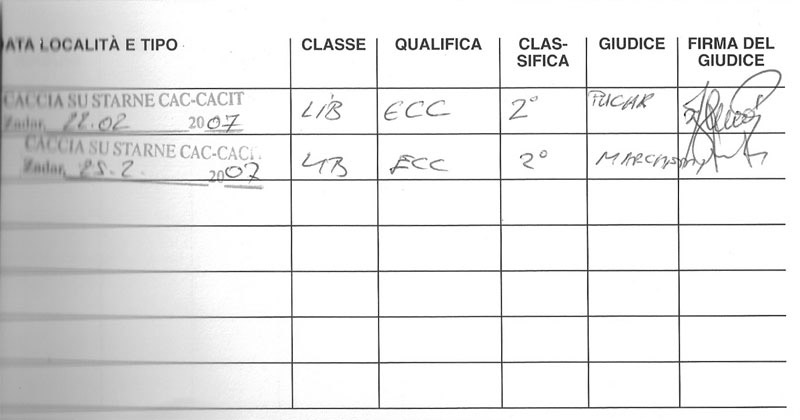 ATA LOCALITÀ E TIPO CLASSE QUALIFICA CLAS-SIFICA GIUDICE FIRMA DEL GIUDICE
CACCIA SU STARNE CAC-CACIT
Zadar, 22.02 2007 LIB ECC 2° PUCAR
CACCIA SU STARNE CAC-CACI
Zadar, 25.2. 2007 LIB ECC 2°